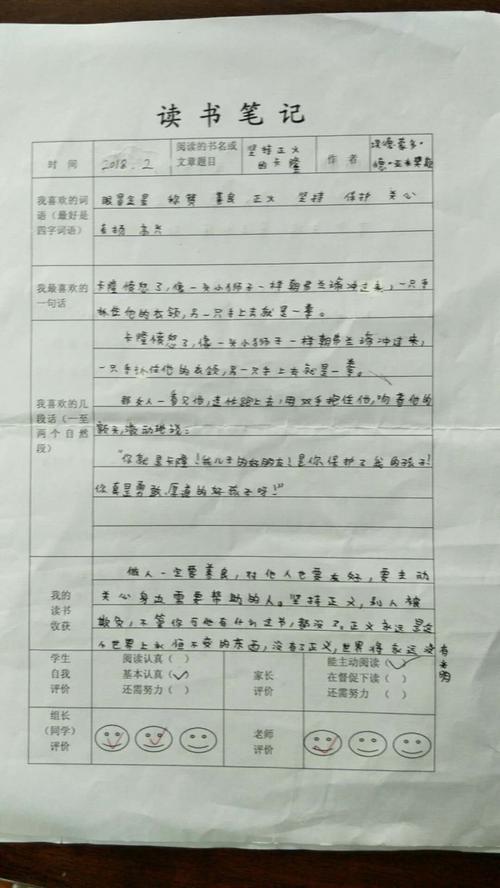 读书笔记
时间 2018.2 阅读的书名或文章题目 坚持正义的卡隆 作者 德·亚米契斯
我喜欢的词语(最好是四字词语)
称赞 善良 正义 坚持 保护 关心
表扬 高兴
我最喜欢的一句话
卡隆愤怒了,像一头小狮子一样朝弗兰谛冲过来,一只手
抓住他的衣领,另一只手上去就是一拳。
我喜欢的几段话(一至两个自然段)
卡隆愤怒了,像一头小狮子一样朝弗兰谛冲过来,
一只手抓住他的衣领,另一只手上去就是一拳。
那女人一看见他,连忙跑上去,用双手抱住他,吻着他的
额头,激动地说:
“你就是卡隆!我儿子的好朋友!是你保护了我的孩子!
你真是勇敢、厚道的好孩子呀!”
我的读书收获
做人一定要善良,对他人也要友好,要主动
关心身边需要帮助的人。坚持正义,别人被
欺负,不管你与他有什么过节,都没了。正义永远是这
个世界上永恒不变的东西,没有了正义,世界将永远没有光明
学生自我评价
阅读认真( )
基本认真(✓)
还需努力( )
家长评价
能主动阅读(✓)
在督促下读( )
还需努力( )
组长(同学)评价
老师评价